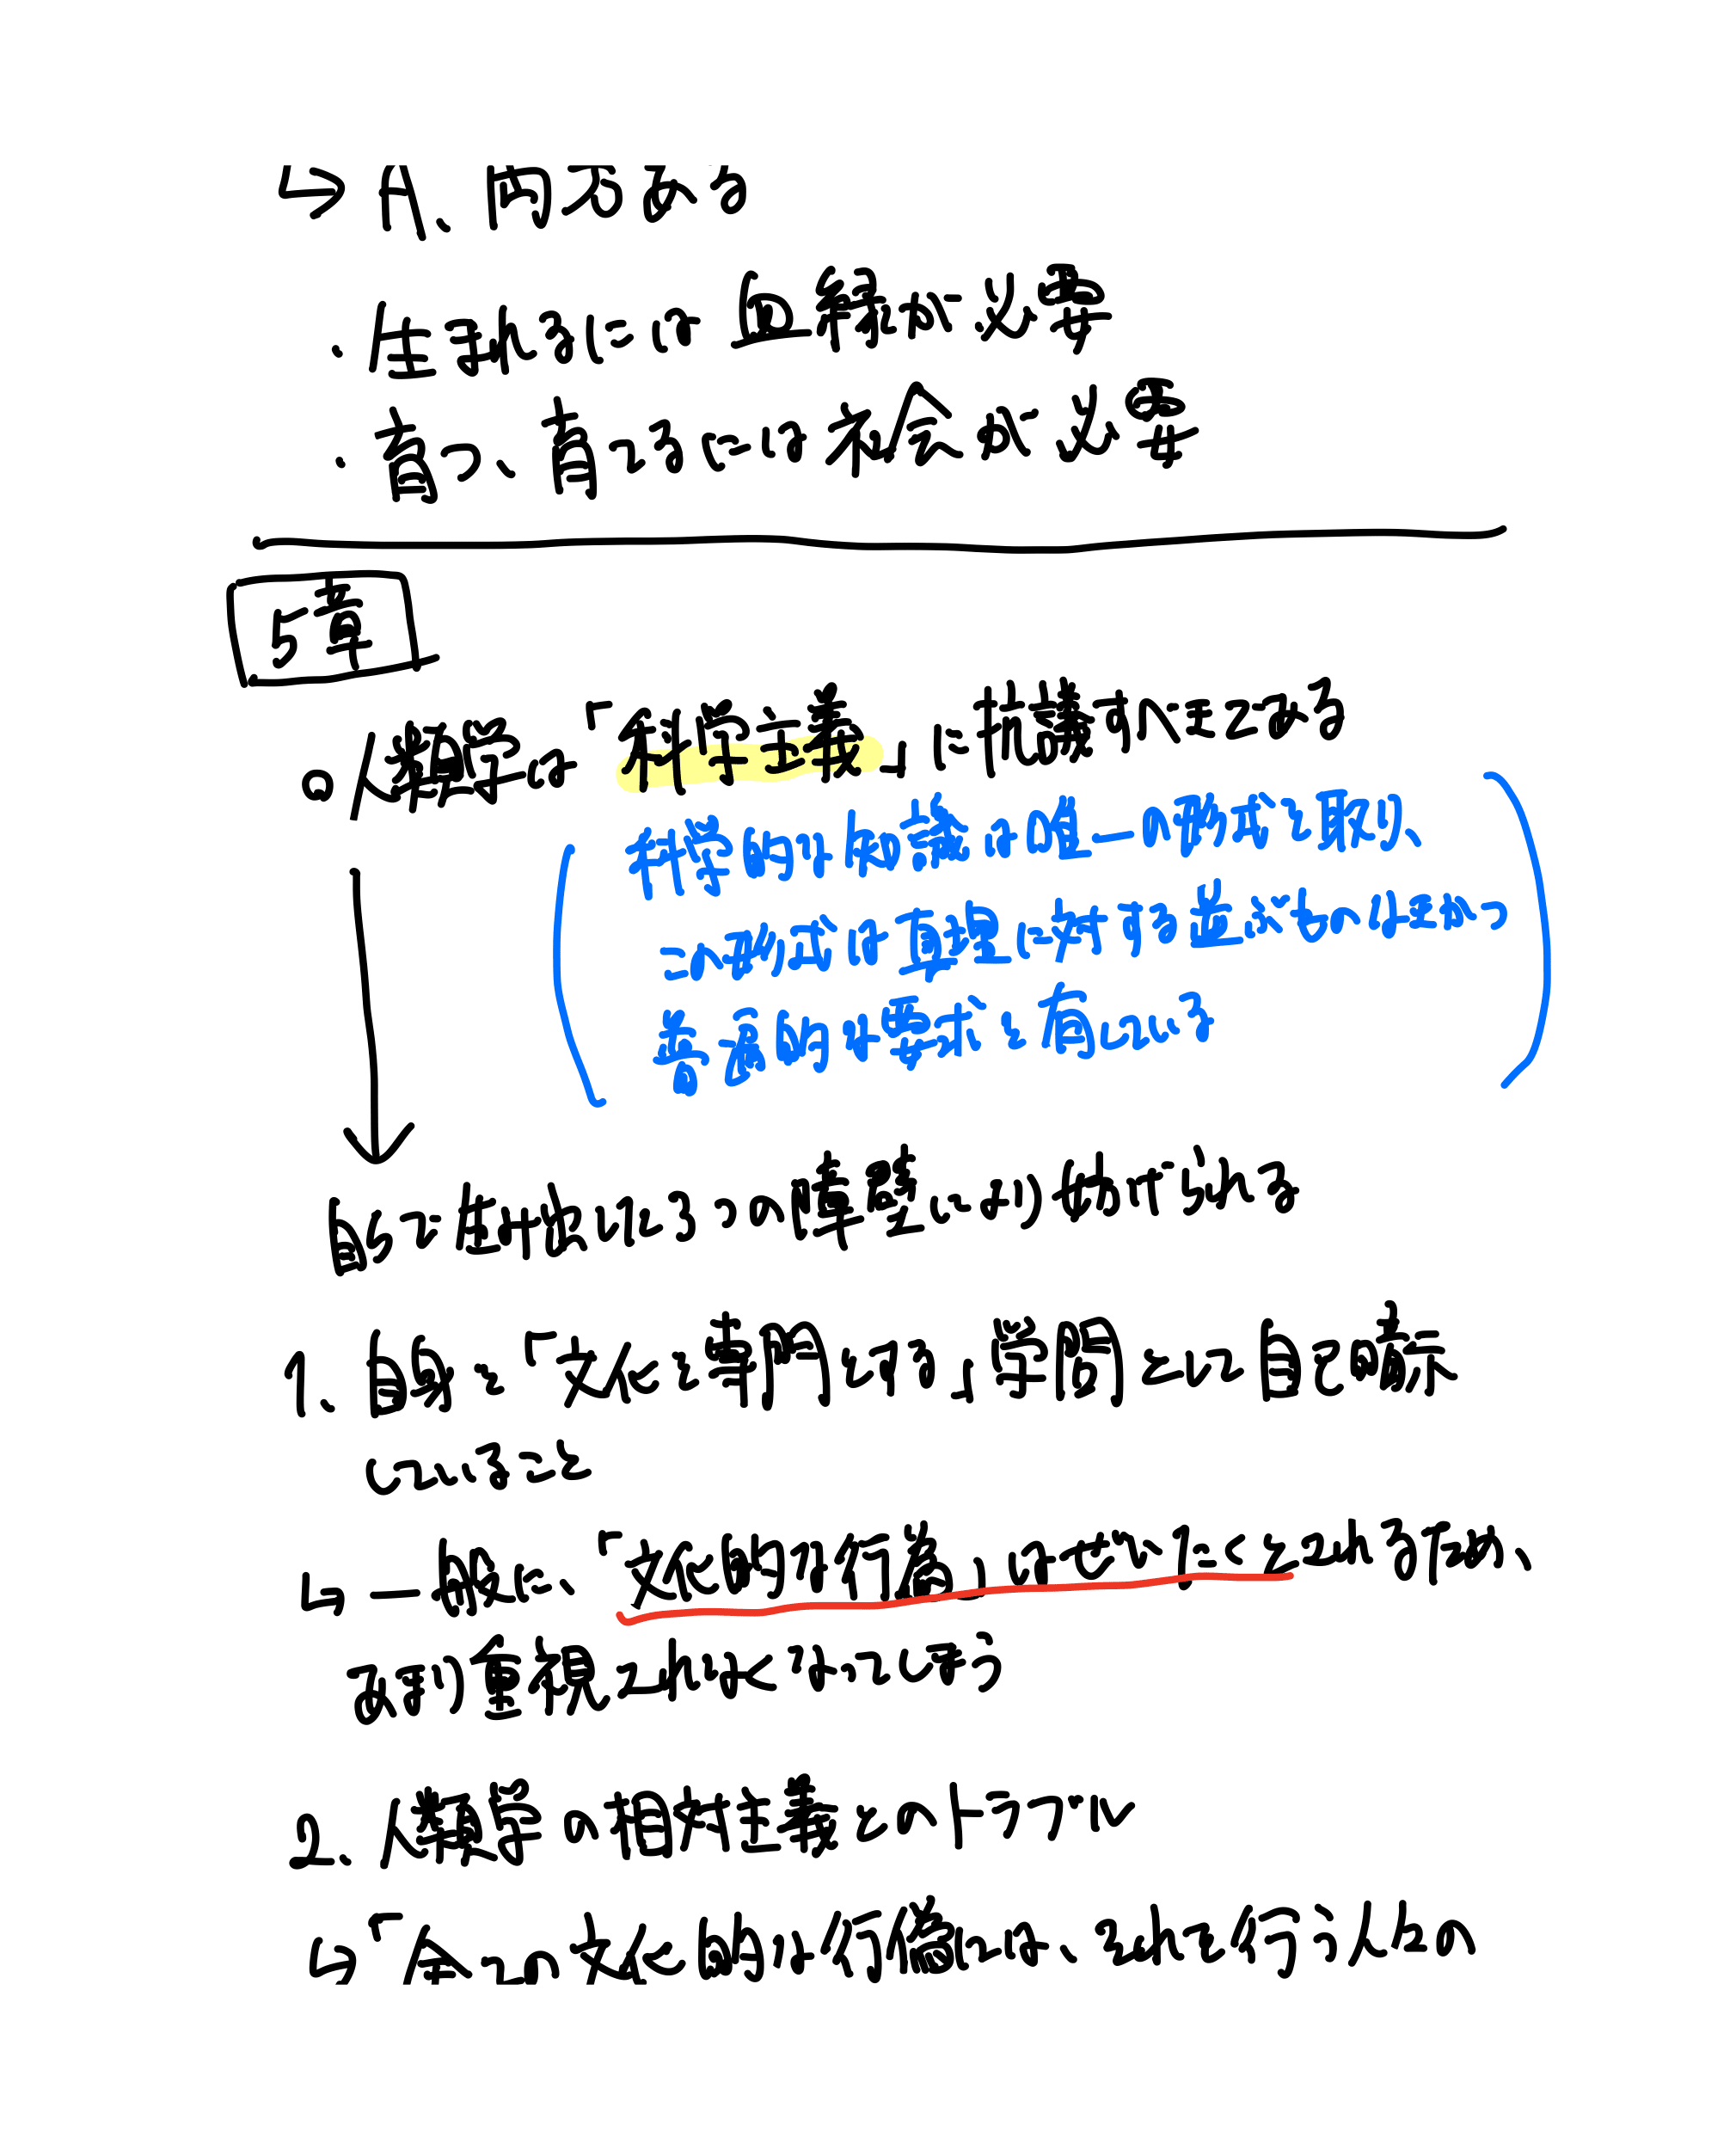 ↳ A、両方ある
・生まれるには血縁が必要
・育つ、育てるには社会が必要
5章
○人類学は「科学主義」に抗議すべきである
科学的な知識は唯一の形式を取り、
この形式は真理に対する基ぶちの仕掛け
普遍的な要求と有している
自らが生み出している3つの障壁により妨げられる
1. 自身を「文化を専門とする」学問として自己開示
していること
↳一般に、「文化的な行為」はぜいたくとされる、
あまり重視されなくなってしまう
2. 人類学の相対主義とのトラブル
○「全ての文化的な行為には、それを行う人々の